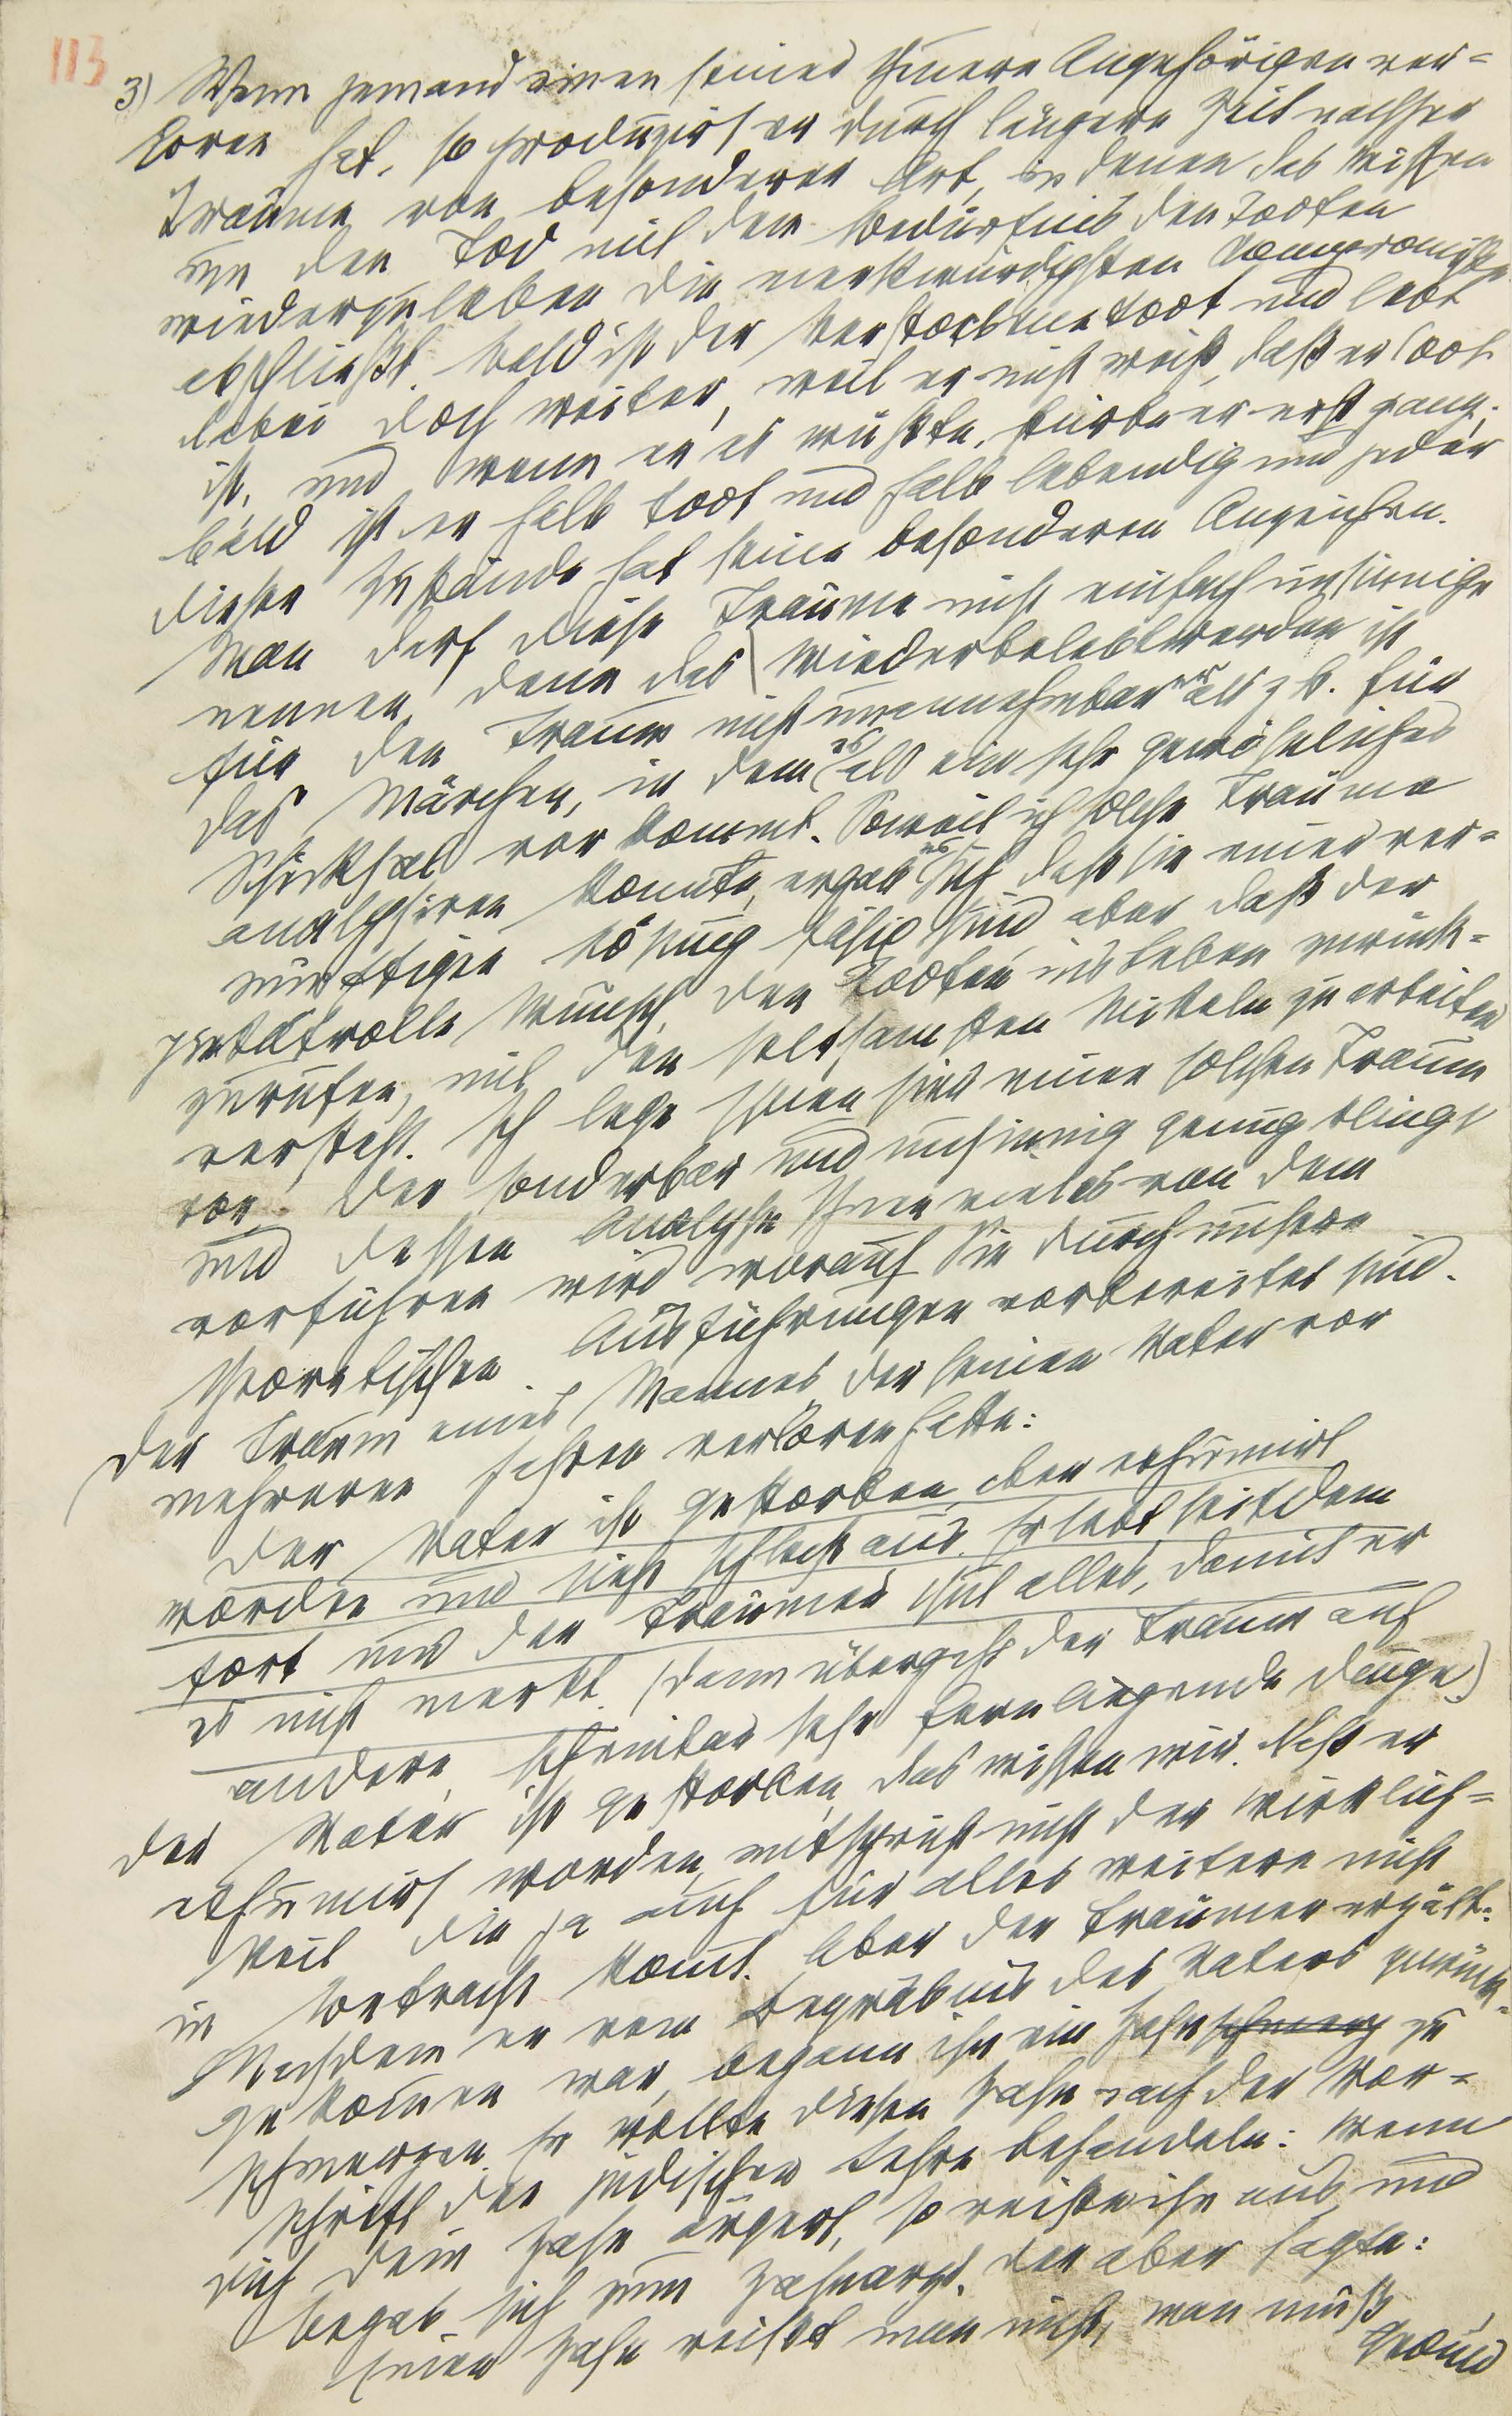 113
3) Wenn jemand einen seiner theuern Angehörigen ver=
loren hat, so produzirt er durch längere Zeit nachher
Träume von besonderer Art, in denen das Wissen
um den Tod mit dem Bedürfnis den Todten
wiederzubeleben die merkwürdigsten Kompromisse
abschließt. Bald ist der Verstorbene todt und lebt
dabei doch weiter, weil er nicht weiß, daß er todt
ist, und wenn er es wüßte, stürbe er erst ganz;
bald ist er halb todt und halb lebendig und jeder
dieser Zustände hat seine besonderen Anzeichen.
Man darf diese Träume nicht einfach unsinnige
nennen, denn das Wiederbelebtwerden ist
für den Traum nicht unannehmbarer als z. B. für
das Märchen, in dem es als ein sehr gewöhnliches
Schicksal vorkommt. Soweit ich solche Träume
analysiren konnte, ergab es sich daß sie einer ver=
nünftigen Lösung fähig sind aber daß der
pietätvolle Wunsch, den Todten ins Leben zurück=
zurufen, mit den seltsamsten Mitteln zu arbeiten
versteht. Ich lege Ihnen hier einen solchen Traum
vor. Der sonderbar und unsinnig genug klingt
und dessen Analyse Ihnen vieles von dem
vorführen wird worauf Sie durch unsere
theoretischen Ausführungen vorbereitet sind.
Der Traum eines Mannes der seinen Vater vor
mehreren Jahren verloren hatte:
Der Vater ist gestorben, aber exhumirt
worden und sieht schlecht aus. Er lebt seitdem
fort und der Träumer thut alles, damit er
es nicht merkt. (Dann übergeht der Traum auf
andere, scheinbar sehr fernliegende Dinge.)
Der Vater ist gestorben, das wissen wir. Daß er
exhumirt worden, entspricht nicht der Wirklich=
keit die ja auch für alles weitere nicht
in Betracht kom̅t. Aber der Träumer erzält:
Nachdem er vom Begräbnis des Vaters zurück=
gekom̅en war, begann ihn ein Zahn schmerz zu
schmerzen. Er wollte diesen Zahn nach der Vor=
schrift der jüdischen Lehre behandeln: Wenn
dich dein Zahn ärgert, so reiße ihn aus, und
begab sich zum Zahnarzt. Der aber sagte:
Einen Zahn reißt man nicht, man muß